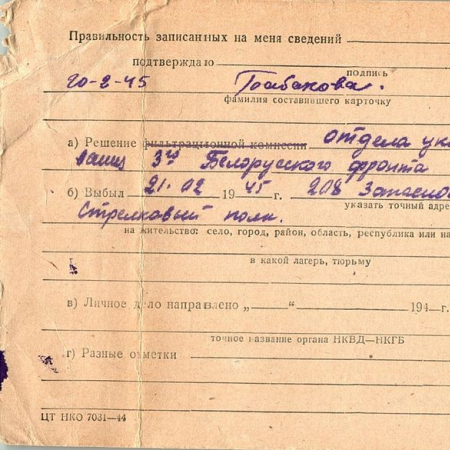 Правильность записанных на меня сведений
подтверждаю
подпись
20-2-45 Грабакова.
фамилия составившего карточку
а) Решение фильтрационной комиссии отдела
3го Белорусского фронта
б) Выбыл 21.02 1945 г. 208 Запасно
указать точный адре
Стрелковый полк.
на жительство: село, город, район, область, республика или на
в какой лагерь, тюрьму
в) Личное дело направлено „ “ 194 г.
точное название органа НКВД—НКГБ
г) Разные отметки
ЦТ НКО 7031—44